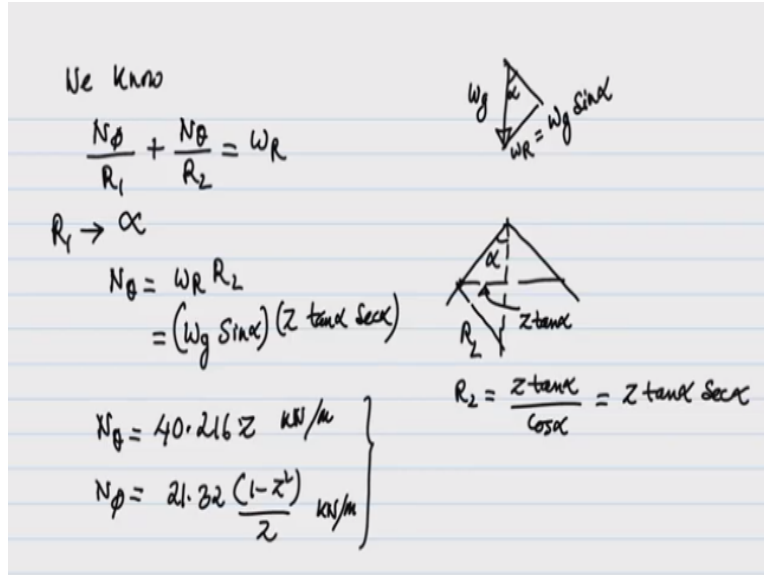 We know
Nφ/R₁ + Nθ/R₂ = ωR
R₁ → ∝
Nθ = ωR R₂
= (ωg Sinα) (Z tanα Secα)
Nθ = 40.216 z kN/m
Nφ = 21.32 (1-z²)/z kN/m
ωg
α
ωR = ωg Sinα
α
Z tanα
R₂
R₂ = Z tanα/Cosα = Z tanα Secα